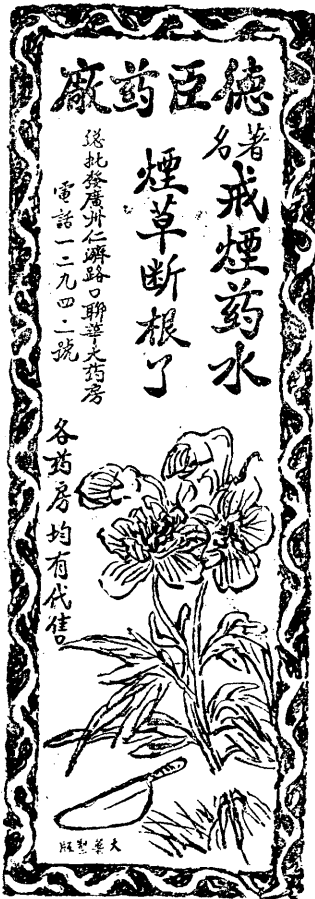 德臣药廠
著名
戒煙药水
煙草断根了
總批發廣州仁濟路口聯華大药房
電話一二九四二號
各药房均有代售
大華製版